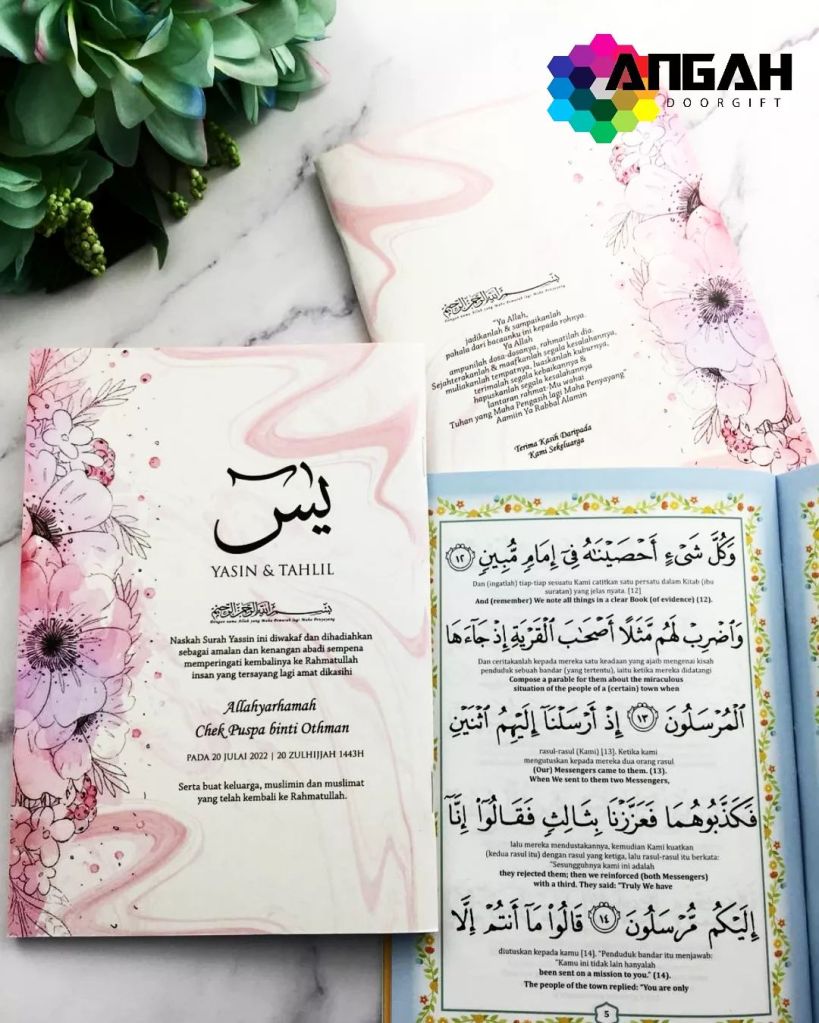 ANGAH
DOORGIFT
بسم الله الرحمن الرحيم
Dengan nama Allah yang Maha Pemurah lagi Maha Penyayang
"Ya Allah,
jadikanlah & sampaikanlah
pahala dari bacaanku ini kepada rohnya.
Ya Allah
ampunilah dosa-dosanya, rahmatilah dia.
Sejahterakanlah & maafkanlah segala kesalahannya,
muliakanlah tempatnya, luaskanlah kuburnya,
terimalah segala kebaikannya &
hapuskanlah segala kesalahannya
lantaran rahmat-Mu wahai
Tuhan yang Maha Pengasih lagi Maha Penyayang"
Aamiin Ya Rabbal Alamin
Terima Kasih Daripada
Kami Sekeluarga
يس
YASIN & TAHLIL
بسم الله الرحمن الرحيم
Dengan nama Allah yang Maha Pemurah lagi Maha Penyayang
Naskah Surah Yassin ini diwakaf dan dihadiahkan
sebagai amalan dan kenangan abadi sempena
memperingati kembalinya ke Rahmatullah
insan yang tersayang lagi amat dikasihi
Allahyarhamah
Chek Puspa binti Othman
PADA 20 JULAI 2022 | 20 ZULHIJJAH 1443H
Serta buat keluarga, muslimin dan muslimat
yang telah kembali ke Rahmatullah.
وَكُلَّ شَىْءٍ أَحْصَيْنَٰهُ فِىٓ إِمَامٍ مُّبِينٍ ١٢
Dan (ingatlah) tiap-tiap sesuatu Kami catitkan satu persatu dalam Kitab (ibu
suratan) yang jelas nyata. [12]
And (remember) We note all things in a clear Book (of evidence) (12).
وَٱضْرِبْ لَهُم مَّثَلًا أَصْحَٰبَ ٱلْقَرْيَةِ إِذْ جَآءَهَا
Dan ceritakanlah kepada mereka satu keadaan yang ajaib mengenai kisah
penduduk sebuah bandar (yang tertentu), iaitu ketika mereka didatangi
Compose a parable for them about the miraculous
situation of the people of a (certain) town when
ٱلْمُرْسَلُونَ ١٣ إِذْ أَرْسَلْنَآ إِلَيْهِمُ ٱثْنَيْنِ
rasul-rasul (Kami) [13]. Ketika kami
mengutuskan kepada mereka dua orang rasul
(Our) Messengers came to them. (13).
When We sent to them two Messengers,
فَكَذَّبُوهُمَا فَعَزَّزْنَا بِثَالِثٍ فَقَالُوٓا۟ إِنَّآ
lalu mereka mendustakannya, kemudian Kami kuatkan
(kedua rasul itu) dengan rasul yang ketiga, lalu rasul-rasul itu berkata:
"Sesungguhnya kami ini adalah
they rejected them; then we reinforced (both Messengers)
with a third. They said: "Truly We have
إِلَيْكُم مُّرْسَلُونَ ١٤ قَالُوا۟ مَآ أَنتُمْ إِلَّا
diutuskan kepada kamu [14]. "Penduduk bandar itu menjawab:
"Kamu ini tidak lain hanyalah
been sent on a mission to you." (14).
The people of the town replied: "You are only
5